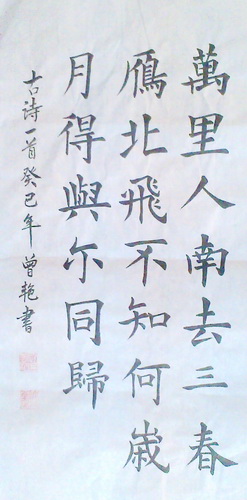 萬里人南去三春
鴈北飛不知何歲
月得與尔同歸
古詩一首癸巳年曾艳書